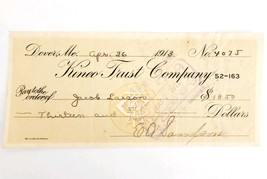 Dover, Me. Apr. 26 1913 No. 4075
Kineo Trust Company 52-163
Pay to the order of Jacob Larson $13.50
Thirteen and Dollars